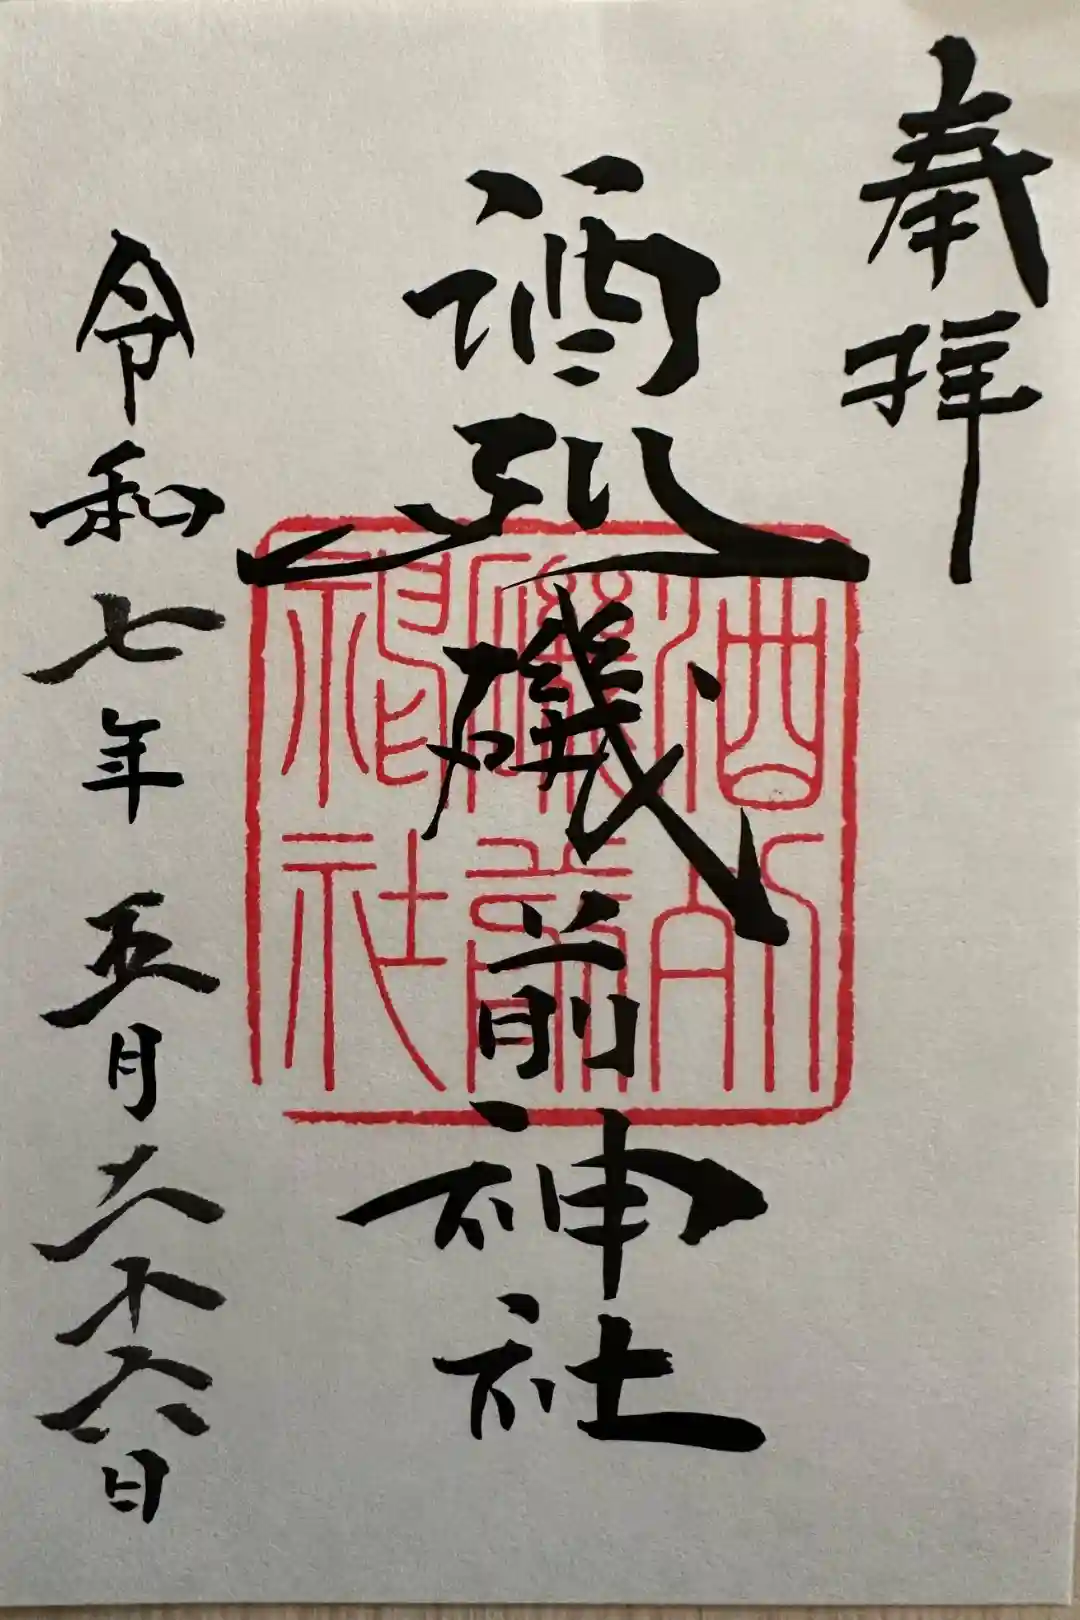 奉拝
酒列磯前神社
酒列
磯前
神社
令和七年五月二十六日